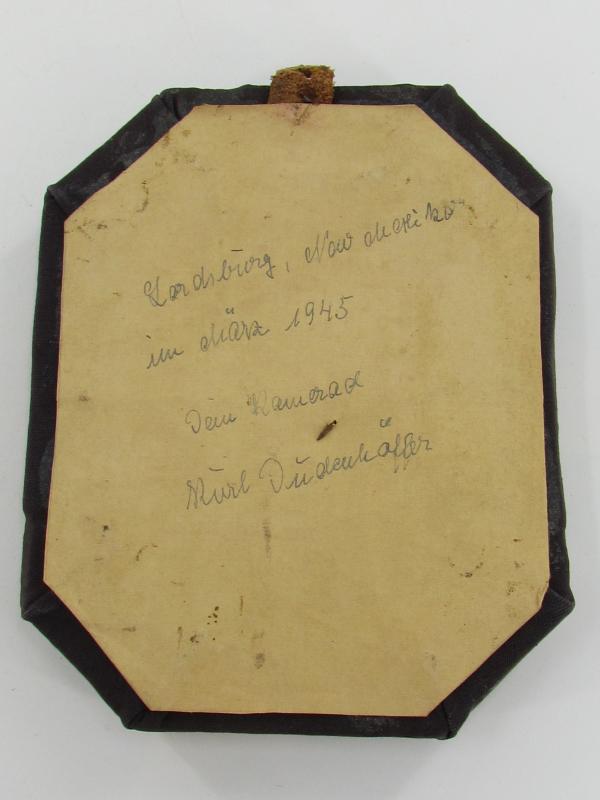 Lordsburg, New Mexiko
im März 1945
Dein Kamerad
Kurl Dudenhöffer